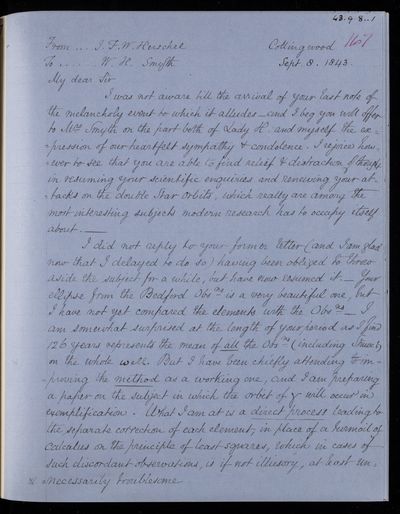 43.9.8..1
From ... J. F. W. Herschel Collingwood
To ..... W. H. Smyth Sept. 8. 1843.
My dear Sir
I was not aware till the arrival of your last note of
the melancholy event to which it alludes – and I beg you will offer
to Mrs Smyth on the part both of Lady H. and myself the ex-
-pression of our heartfelt sympathy & condolence. I rejoice how-
ever to see that you are able to find relief & distraction of thought
in resuming your scientific enquiries and renewing your at-
-tacks on the double Star orbits, which really are among the
most interesting subjects modern research has to occupy itself
about. —
I did not reply to your former letter (and I am glad
now that I delayed to do so) having been obliged to throw
aside the subject for a while, but have now resumed it. — Your
ellipse from the Bedford Obsns is a very beautiful one, but
I have not yet compared the elements with the Obsns — I
am somewhat surprised at the length of your period as I find
126 years represents the mean of all the Obsns (including
on the whole well. But I have been chiefly attending to im-
-proving the method as a working one, and I am preparing
a paper on the subject in which the orbit of γ will occur in
exemplification. What I am at is a direct process leading to
the separate correction of each element, in place of a
calculus on the principle of least squares, which in cases of
such discordant observations, is if not illusory, at least un-
-necessarily troublesome